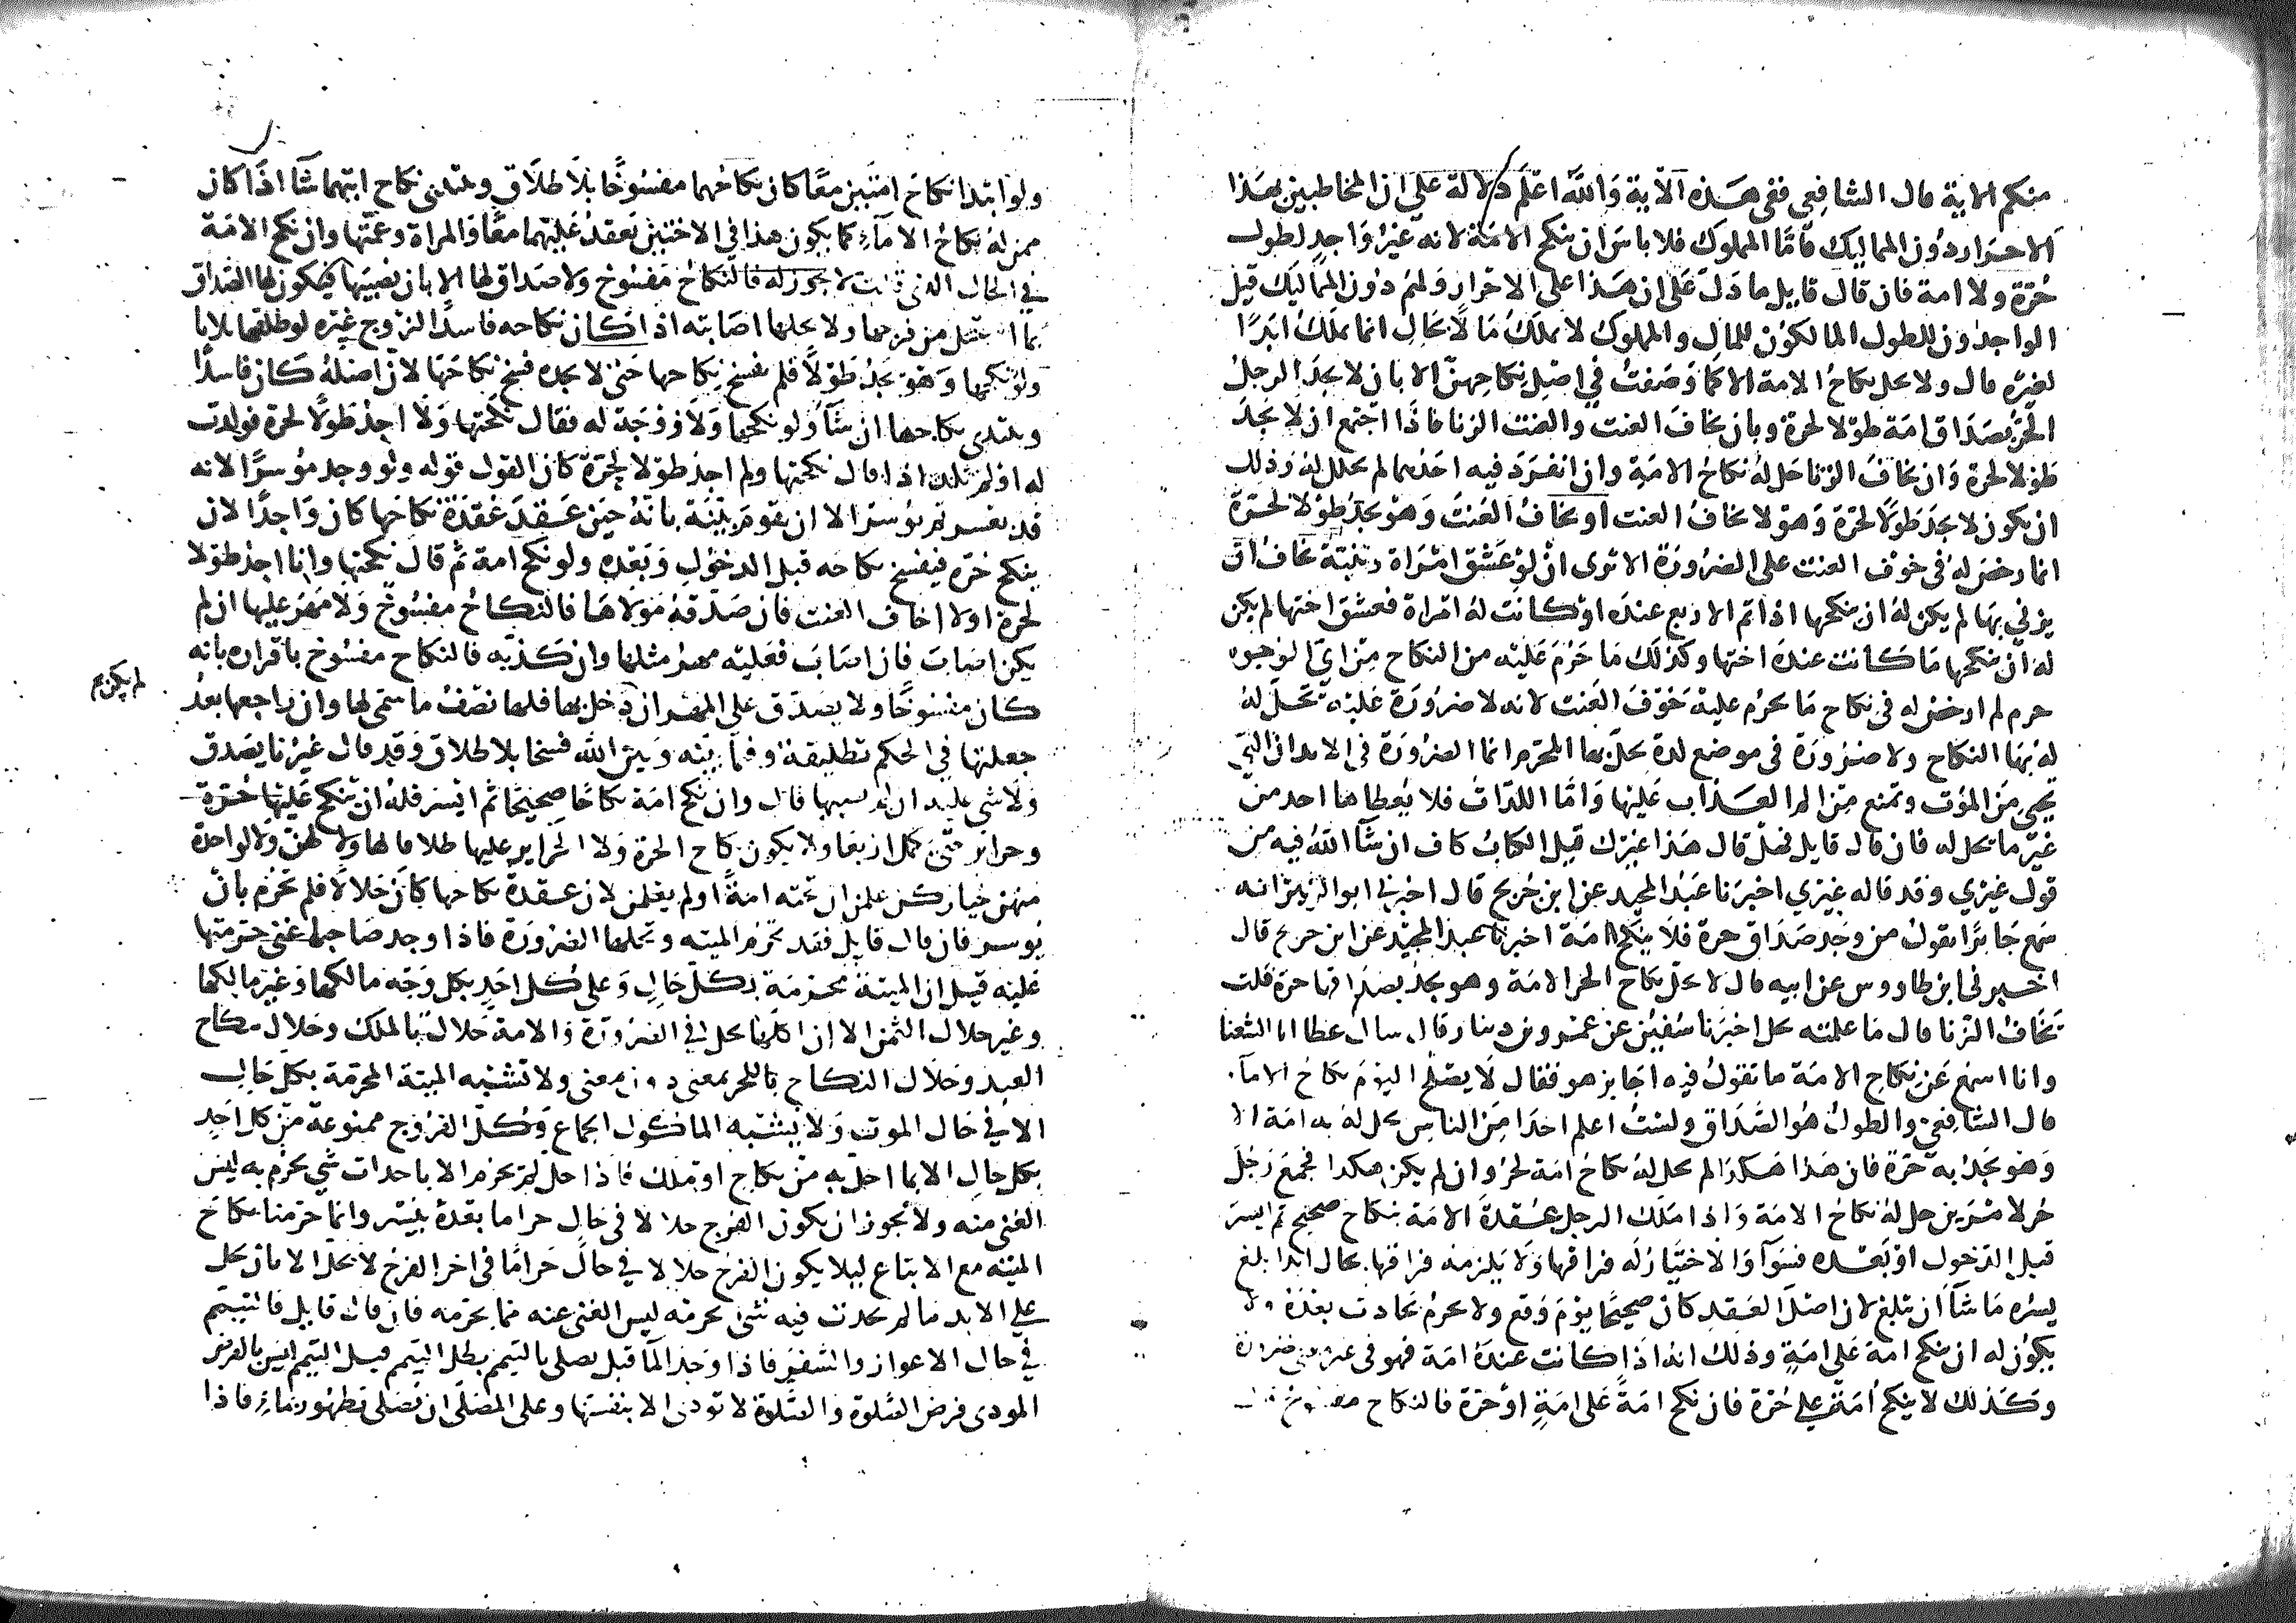 منكم الاية قال الشافعي ففي هذه الآية والله اعلم دلالة على ان المخاطبين بهذا
الاحرار دون المماليك فاما المملوك فلا باس ان ينكح الامة لانه غير واجد لطول
حرة ولا امة فان قال قايل ما دل على ان هذا على الاحرار ولهم دون المماليك قيل
الواجدون للطول المالكون للمال والمملوك لا يملك مالا بحال انما يملك ابدا
لغيره قال ولا يحل نكاح الامة الا كما وصفت في اصل نكاحهن الا بان لا يجد الرجل
الحر بصداق امة طولا لحرة وبان يخاف العنت والعنت الزنا فاذا اجتمع ان لا يجد
طولا لحرة وان يخاف الزنا حل له نكاح الامة وان انفرد فيه احدهما لم يحلل له وذلك
ان يكون لا يجد طولا لحرة وهو لا يخاف العنت او يخاف العنت وهو يجد طولا لحرة
انما رخص له في خوف العنت على الضرورة الا ترى ان لو عشق امراة وثنية يخاف ان
يزني بها لم يكن له ان ينكحها اذا تم الاربع عنده او كانت له امراة فعشق اختها لم يكن
له ان ينكحها ما كانت عنده اختها وكذلك ما حرم عليه من النكاح من اي الوجوه
حرم لم ارخص له في نكاح ما يحرم عليه خوف العنت لانه لا ضرورة عليه تحل له
له بها النكاح ولا ضرورة في موضع لذة يحل بها المحرم انما الضرورة في الابدان التي
تحي من الموت وتمنع من الم العذاب عليها واما اللذات فلا يعطاها احد من
غير ما يحل له فان قال قايل فهل قال هذا غيرك قيل الكتاب كاف ان شآ الله فيه من
قول غيري وقد قاله غيري اخبرنا عبد المجيد عن ابن جريج قال اخبرني ابو الزبير انه
سمع جابرا يقول من وجد صداق حرة فلا ينكح امة اخبرنا عبد المجيد عن ابن جريج قال
اخبرني ابن طاووس عن ابيه قال لا يحل نكاح الحر الامة وهو يجد بصداقها حرة قلت
يخاف الزنا قال ما علمته يحل اخبرنا سفين عن عمرو بن دينار قال سال عطا ابا الشعثا
وانا اسمع عن نكاح الامة ما تقول فيه اجايز هو فقال لا يصلح اليوم نكاح الامآ
قال الشافعي والطول هو الصداق ولست اعلم احدا من الناس يحل له به امة الا
وهو يجد به حرة فان هذا هكذا لم يحل له نكاح امة لحر وان لم يكن هكذا فجمع رجل
حر لامرين حل له نكاح الامة واذا ملك الرجل عقدة الامة بنكاح صحيح ثم ايسر
قبل الدخول او بعده فسوآ والاختيار له فراقها ولا يلزمه فراقها بحال ابدا بلغ
يسره ما شآ ان يبلغ لان اصل العقد كان صحيحا يوم وقع ولا يحرم بحادث بعده ولا
يكون له ان ينكح امة على امة وذلك انه اذا كانت عنده امة فهو في غير معنى ضرورة
وكذلك لا ينكح امة على حرة فان نكح امة على امة او حرة فالنكاح مفسوخ
ولو ابتدا نكاح امتين معا كان نكاحهما مفسوخا بلا طلاق ويبتدي نكاح ايتهما شآ اذا كان
ممن له نكاح الامآء كما يكون هذا في الاختين يعقد عليهما معا والمراة وعمتها وان نكح الامة
في الحال التي قلت لا يجوز له فالنكاح مفسوخ ولا صداق لها الا بان يصيبها فيكون لها الصداق
بما استحل من فرجها ولا يحلها اصابته اذا كان نكاحه فاسدا لزوج غيره لو طلقها ثلاثا
ولو نكحها وهو يجد طولا فلم يفسخ نكاحها حتى لا يجده فسخ نكاحها لان اصله كان فاسدا
ويبتدي نكاحها ان شآ ولو نكحها ولا زوجة له فقال نكحتها ولا اجد طولا لحرة فولدت
له او لم تلد اذا قال نكحتها ولم اجد طولا لحرة كان القول قوله ولو وجد موسرا لانه
قد يعسر ثم يوسر الا ان تقوم بينة بانه حين عقد عقدة نكاحها كان واجدا لان
ينكح حرة فيفسخ نكاحه قبل الدخول وبعده ولو نكح امة ثم قال نكحتها وانا اجد طولا
لحرة او لا اخاف العنت فان صدقه مولاها فالنكاح مفسوخ ولا مهر عليها ان لم
يكن اصاب فان اصاب فعليه مهر مثلها وان كذبه فالنكاح مفسوخ باقراره بانه
كان مفسوخا ولا يصدق على المهر ان دخل بها فلها نصف ما سمى لها وان راجعها بعد
لم يكن
جعلتها في الحكم تطليقة وفيما بينه وبين الله فسخا بلا طلاق وقد قال غيرنا يصدق
ولا شي عليه ان لم يصبها قال وان نكح امة نكاحا صحيحا ثم ايسر فله ان ينكح عليها حرة
وحراير حتى يكمل اربعا ولا يكون نكاح الحرة ولا الحراير عليها طلاقا لها ولا لهن ولا لواحدة
منهن خيار كن علمن ان تحته امة او لم يعلمن لان عقدة نكاحها كان حلالا فلم يحرم بان
يوسر فان قال قايل فقد تحرم الميتة وتحلها الضرورة فاذا وجد صاحبها غنى حرمتها
عليه قيل ان الميتة محرمة بكل حال وعلى كل احد بكل وجه مالكها وغير مالكها
وغير حلال الثمن الا ان اكلها يحل في الضرورة والامة حلال بالملك وحلال بنكاح
العبد وحلال النكاح للحر بمعنى دون معنى ولا تشبه الميتة المحرمة بكل حال
الا في حال الموت ولا يشبه الماكول الجماع وكل الفروج ممنوعة من كل احد
بكل حال الا بما احل به من نكاح او ملك فاذا حل لم يحرم الا باحداث شي يحرم به ليس
الغنى منه ولا يجوز ان يكون الفرج حلالا في حال حراما بعده بيسر وانما حرمنا نكاح
المتعه مع الاتباع ليلا يكون الفرج حلالا في حال حراما في اخر الفرج لا يحل الا بان يحل
على الابد ما لم يحدث فيه شي يحرمه ليس الغنى عنه مما يحرمه فان قال قايل فالتيمم
في حال الاعواز والسفر فاذا وجد المآ قبل يصلي بالتيمم بطل التيمم قيل التيمم ليس بالفرض
المودى فرض الصلوة والصلوة لا تودى الا بنفسها وعلى المصلى ان يصلى بطهور بمآء فاذا